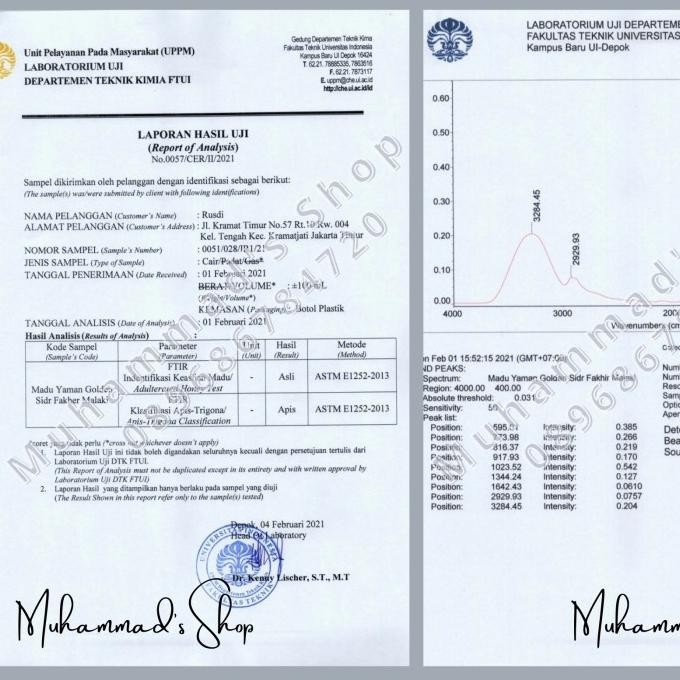 Unit Pelayanan Pada Masyarakat (UPPM)
LABORATORIUM UJI
DEPARTEMEN TEKNIK KIMIA FTUI
Gedung Departemen Teknik Kimia
Fakultas Teknik Universitas Indonesia
Kampus Baru UI Depok 16424
T. 62.21. 78885335, 7863516
F. 62.21. 7873117
E. uppm@che.ui.ac.id
http://che.ui.ac.id/id
LAPORAN HASIL UJI
(Report of Analysis)
No.0057/CER/II/2021
Sampel dikirimkan oleh pelanggan dengan identifikasi sebagai berikut:
(The sample(s) was/were submitted by client with following identifications)
NAMA PELANGGAN (Customer's Name) : Rusdi
ALAMAT PELANGGAN (Customer's Address) : Jl. Kramat Timur No.57 Rt.10 Rw. 004
Kel. Tengah Kec. Kramatjati Jakarta Timur
NOMOR SAMPEL (Sample's Number) : 0051/028/IR1/21
JENIS SAMPEL (Type of Sample) : Cair/Padat/Gas*
TANGGAL PENERIMAAN (Date Received) : 01 Februari 2021
BERAT/VOLUME* : ±100 mL
(Weight/Volume*)
KEMASAN (Packaging) : Botol Plastik
TANGGAL ANALISIS (Date of Analysis) : 01 Februari 2021
Hasil Analisis (Results of Analysis) :
Kode Sampel Parameter Unit Hasil Metode
(Sample's Code) (Parameter) (Unit) (Result) (Method)
FTIR
Indentifikasi Keaslian Madu/ - Asli ASTM E1252-2013
Adulterated Honey Test
Madu Yaman Golden
Sidr Fakher Malaki
FTIR
Klasifikasi Apis-Trigona/ - Apis ASTM E1252-2013
Apis-Trigona Classification
*coret yang tidak perlu (*cross out whichever doesn't apply)
1. Laporan Hasil Uji ini tidak boleh digandakan seluruhnya kecuali dengan persetujuan tertulis dari
Laboratorium Uji DTK FTUI.
(This Report of Analysis must not be duplicated except in its entirety and with written approval by
Laboratorium Uji DTK FTUI)
2. Laporan Hasil yang ditampilkan hanya berlaku pada sampel yang diuji
(The Result Shown in this report refer only to the sample(s) tested)
Depok, 04 Februari 2021
Head Of Laboratory
Dr. Kenny Lischer, S.T., M.T
UNIVERSITAS INDONESIA
FAKULTAS TEKNIK
Muhammad's Shop
Muhammad's Shop
089686784720
LABORATORIUM UJI DEPARTEME
FAKULTAS TEKNIK UNIVERSITAS
Kampus Baru UI-Depok
0.60
0.50
0.40
0.30
0.20
0.10
0.00
3284.45
2929.93
4000 3000 200
Wavenumbers (cm
on Feb 01 15:52:15 2021 (GMT+07:00)
ND PEAKS:
Spectrum: Madu Yaman Golden Sidr Fakhir Malaki
Region: 4000.00 400.00
Absolute threshold: 0.031
Sensitivity: 50
Peak list:
Position: 595.31 Intensity: 0.385
Position: 773.98 Intensity: 0.266
Position: 816.37 Intensity: 0.219
Position: 917.93 Intensity: 0.170
Position: 1023.52 Intensity: 0.542
Position: 1344.24 Intensity: 0.127
Position: 1642.43 Intensity: 0.0610
Position: 2929.93 Intensity: 0.0757
Position: 3284.45 Intensity: 0.204
Num
Num
Reso
Samp
Optic
Aper
Dete
Bea
Sou
Muhamm